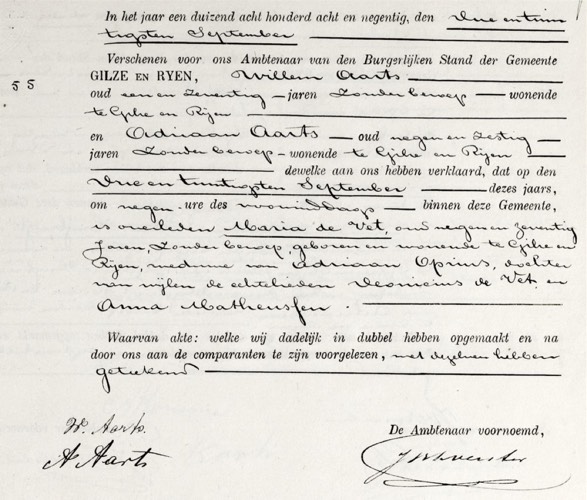 In het jaar een duizend acht honderd acht en negentig, den drie en twin
tigsten September
Verschenen voor ons Ambtenaar van den Burgerlijken Stand der Gemeente
55
GILZE EN RYEN, Willem Aarts
oud een en zeventig jaren zonder beroep wonende
te Gilze en Rijen
en Adriaan Aarts oud negen en zestig
jaren zonder beroep wonende te Gilze en Rijen
dewelke aan ons hebben verklaard, dat op den
drie en twintigsten September dezes jaars,
om negen ure des voormiddags binnen deze Gemeente,
is overleden Maria de Vet, oud negen en zeventig
jaren, zonder beroep, geboren en wonende te Gilze en
Rijen, weduwe van Adriaan Oprins, dochter
van wijlen de echtelieden Dionicius de Vet en
Anna Matheussen.
Waarvan akte: welke wij dadelijk in dubbel hebben opgemaakt en na
door ons aan de comparanten te zijn voorgelezen, met dezelven hebben
geteekend
W. Aarts
A Aarts
De Ambtenaar voornoemd,